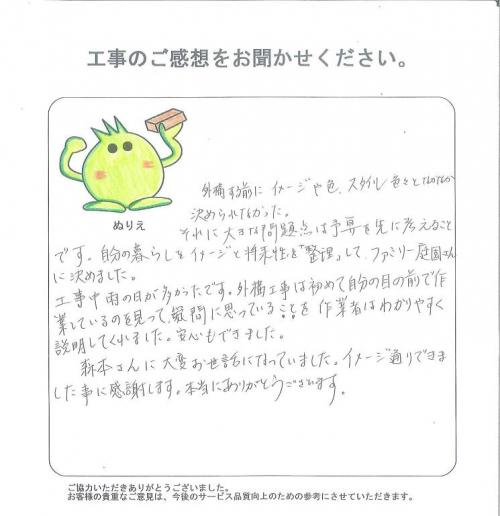 工事のご感想をお聞かせください。
ぬりえ
外構する前に イメージや色、スタイル 色々となかなか
決められなかった。
それに大きな問題点は予算を先に考えること
です。自分の暮らしをイメージと将来性を「整理」して、ファミリー庭園さん
に決めました。
工事中雨の日が多かったです。外構工事は初めて自分の目の前で作
業しているのを見って、疑問に思っていることを 作業者はわかりやすく
説明してくれました。安心もできました。
森本さんに大変お世話になっていました。イメージ通りできま
した事に感謝します。本当にありがとうございます。
ご協力いただきありがとうございました。
お客様の貴重なご意見は、今後のサービス品質向上のための参考にさせていただきます。